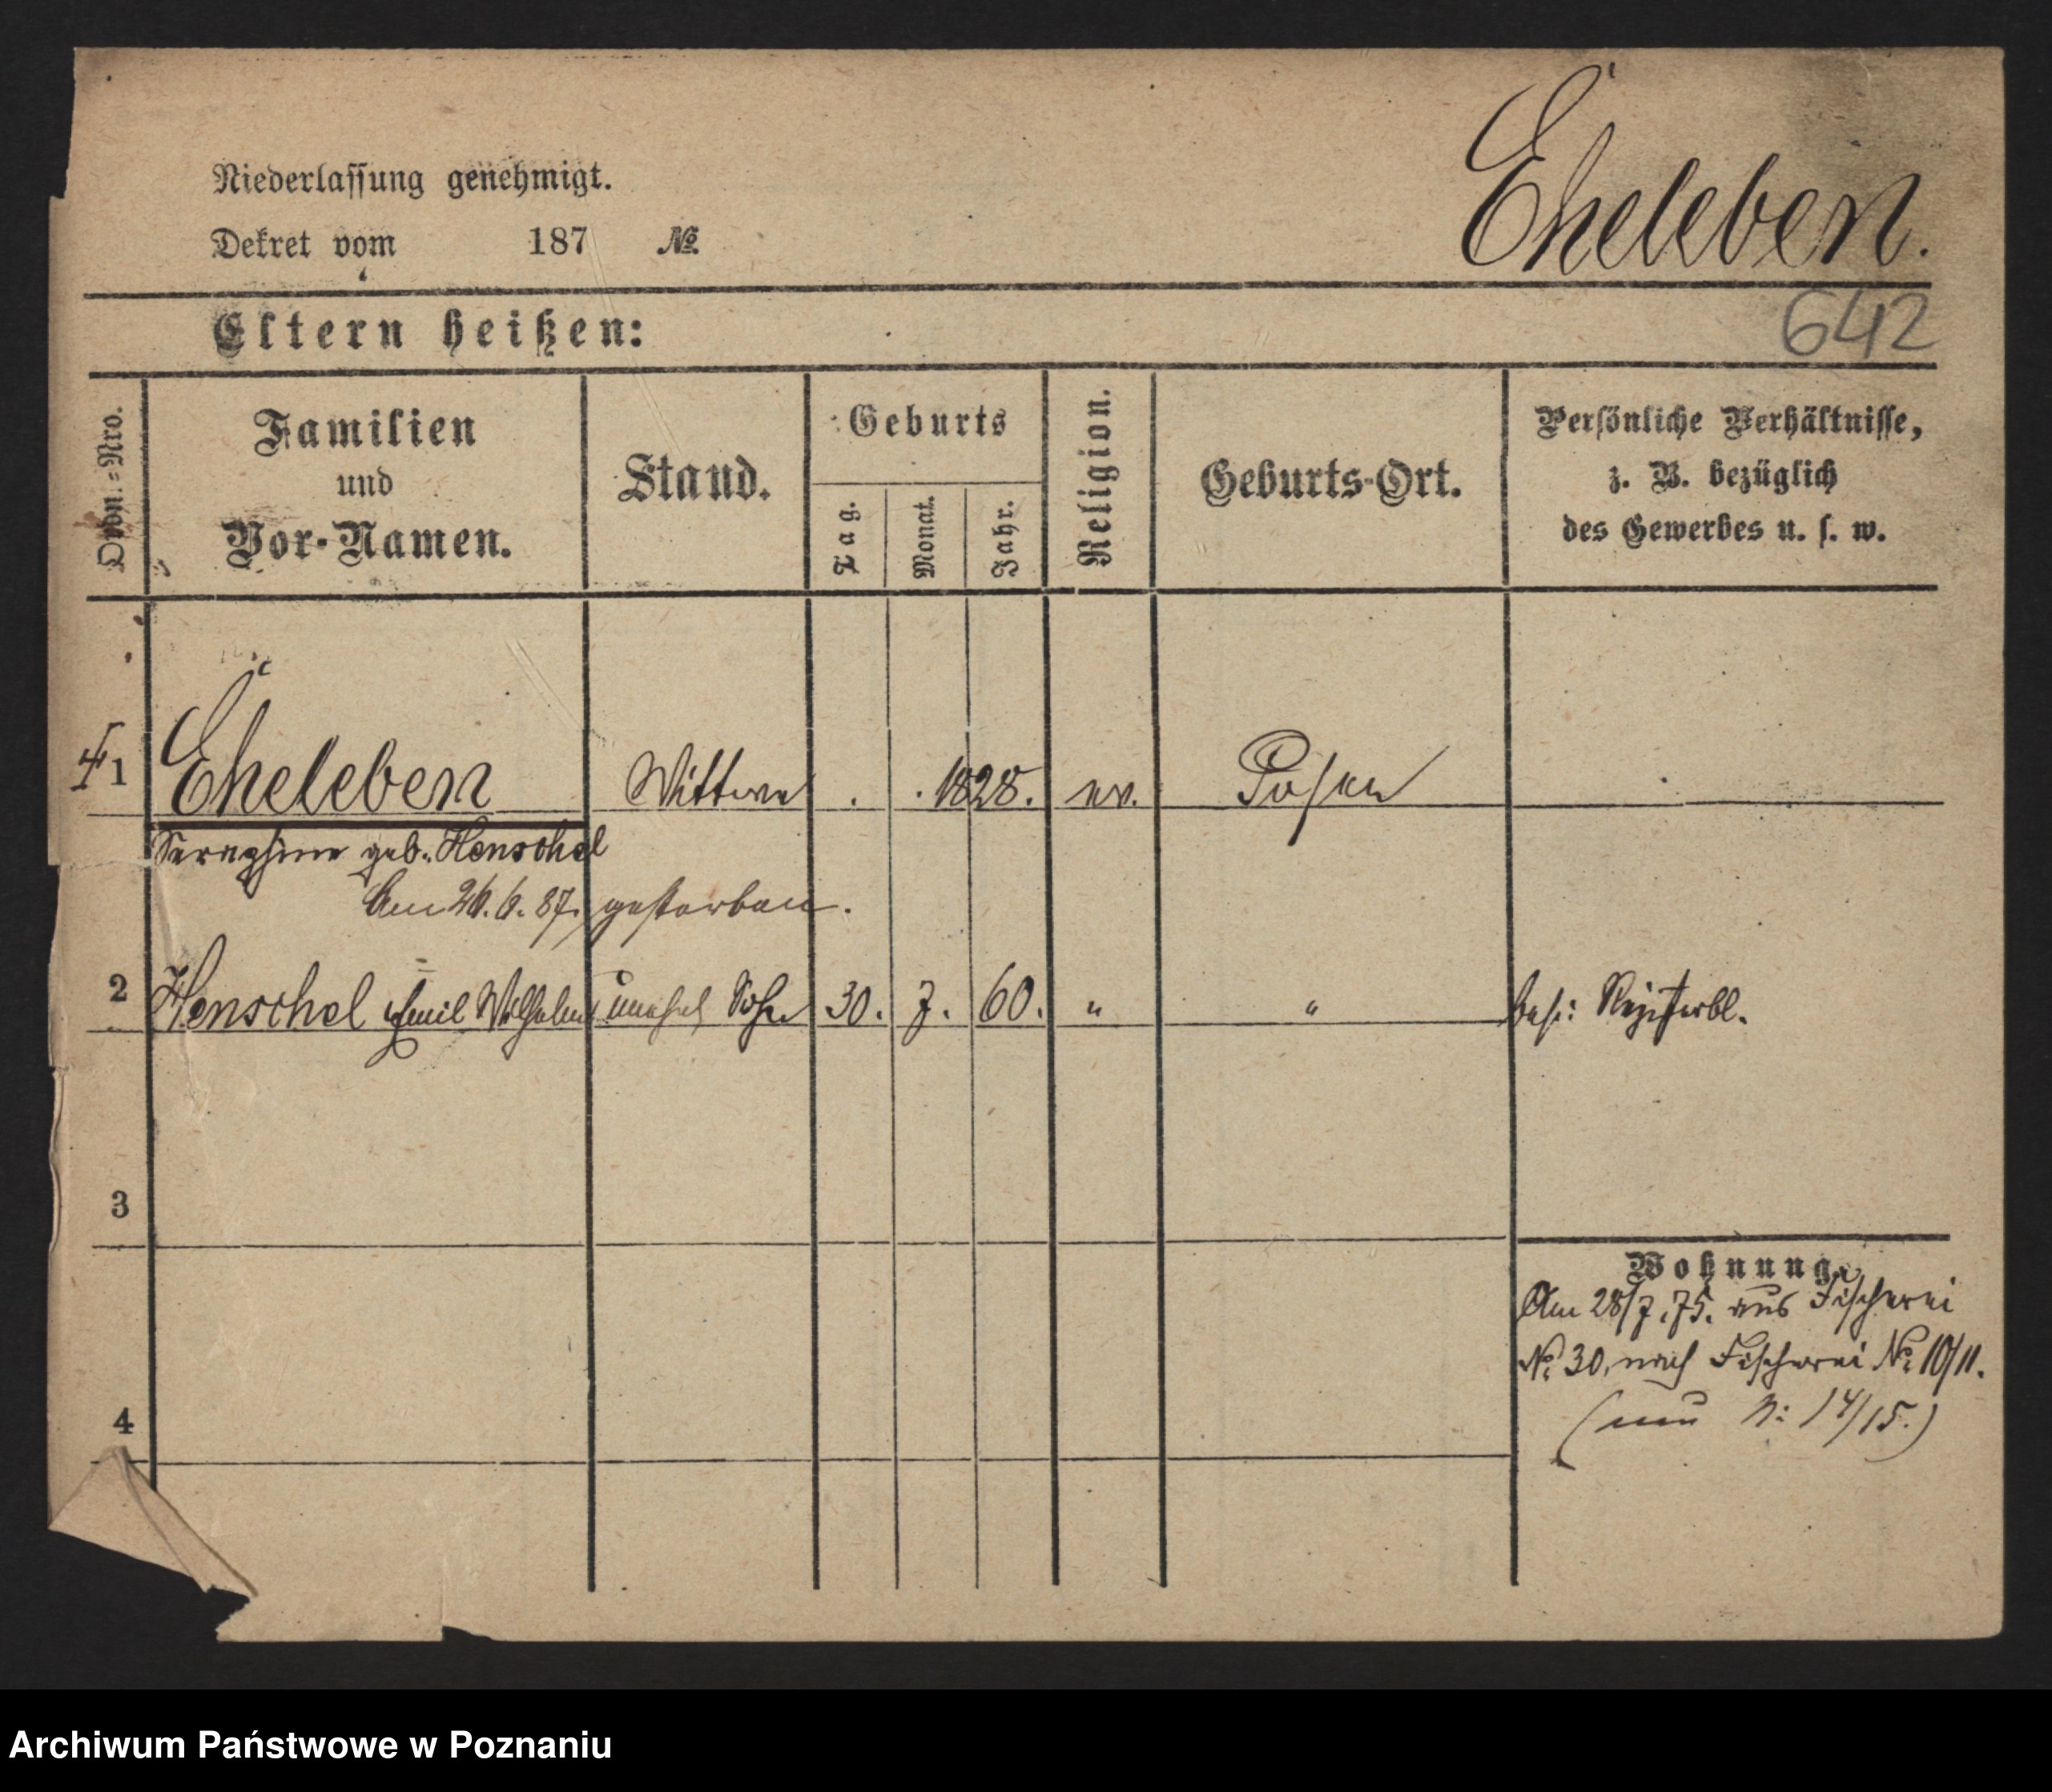 Eheleben.
Niederlassung genehmigt.
Dekret vom 187 №
642
Eltern heißen:
Ordn.=Nro.
Familien
und
Vor-Namen.
Stand.
Geburts
Tag.
Monat.
Jahr.
Religion.
Geburts-Ort.
Persönliche Verhältnisse,
z. B. bezüglich
des Gewerbes u. s. w.
1 Eheleben Wittwe . . 1828. ev. Posen
Seraphine geb. Henschel
Am 26.6.87. gestorben.
2 Henschel Emil Wilhelm unehel Sohn 30. 7. 60. " "
3
Wohnung.
Am 28/7.75. aus Fischerei
No 30, nach Fischerei No 10/11.
(neu N: 14/15.)
4
Archiwum Państwowe w Poznaniu